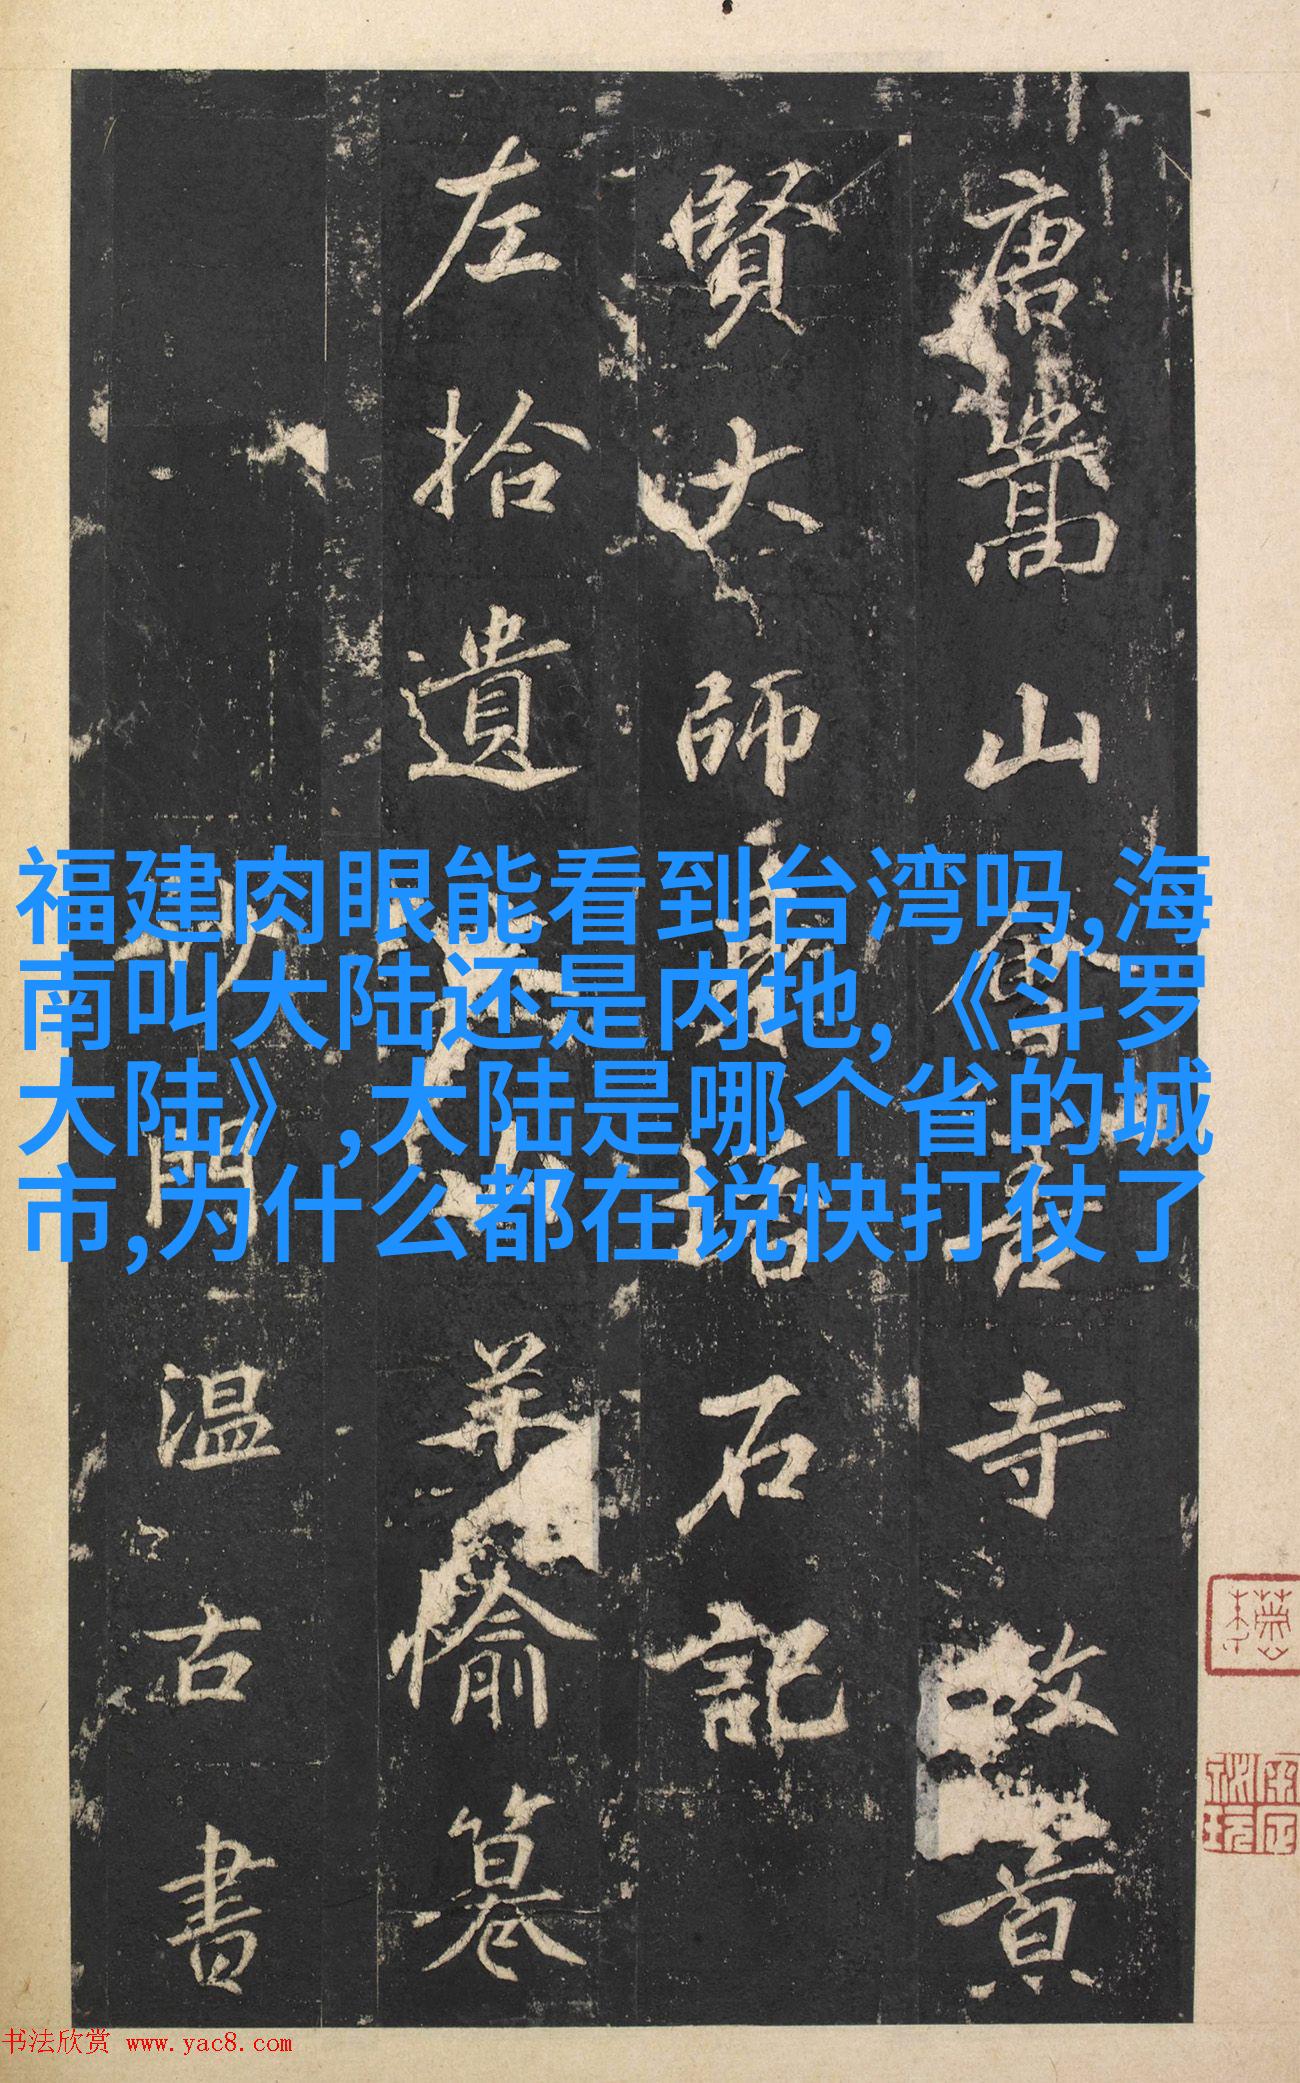 唐嵩山會善寺故景
賢大師身塔石記
左拾遺山羊愉
沙門溫古書
福建肉眼能看到台湾吗,海
南叫大陆还是内地,《斗罗
大陆》,大陆是哪个省的城
市,为什么都在说快打仗了
书法欣赏 www.yac8.com